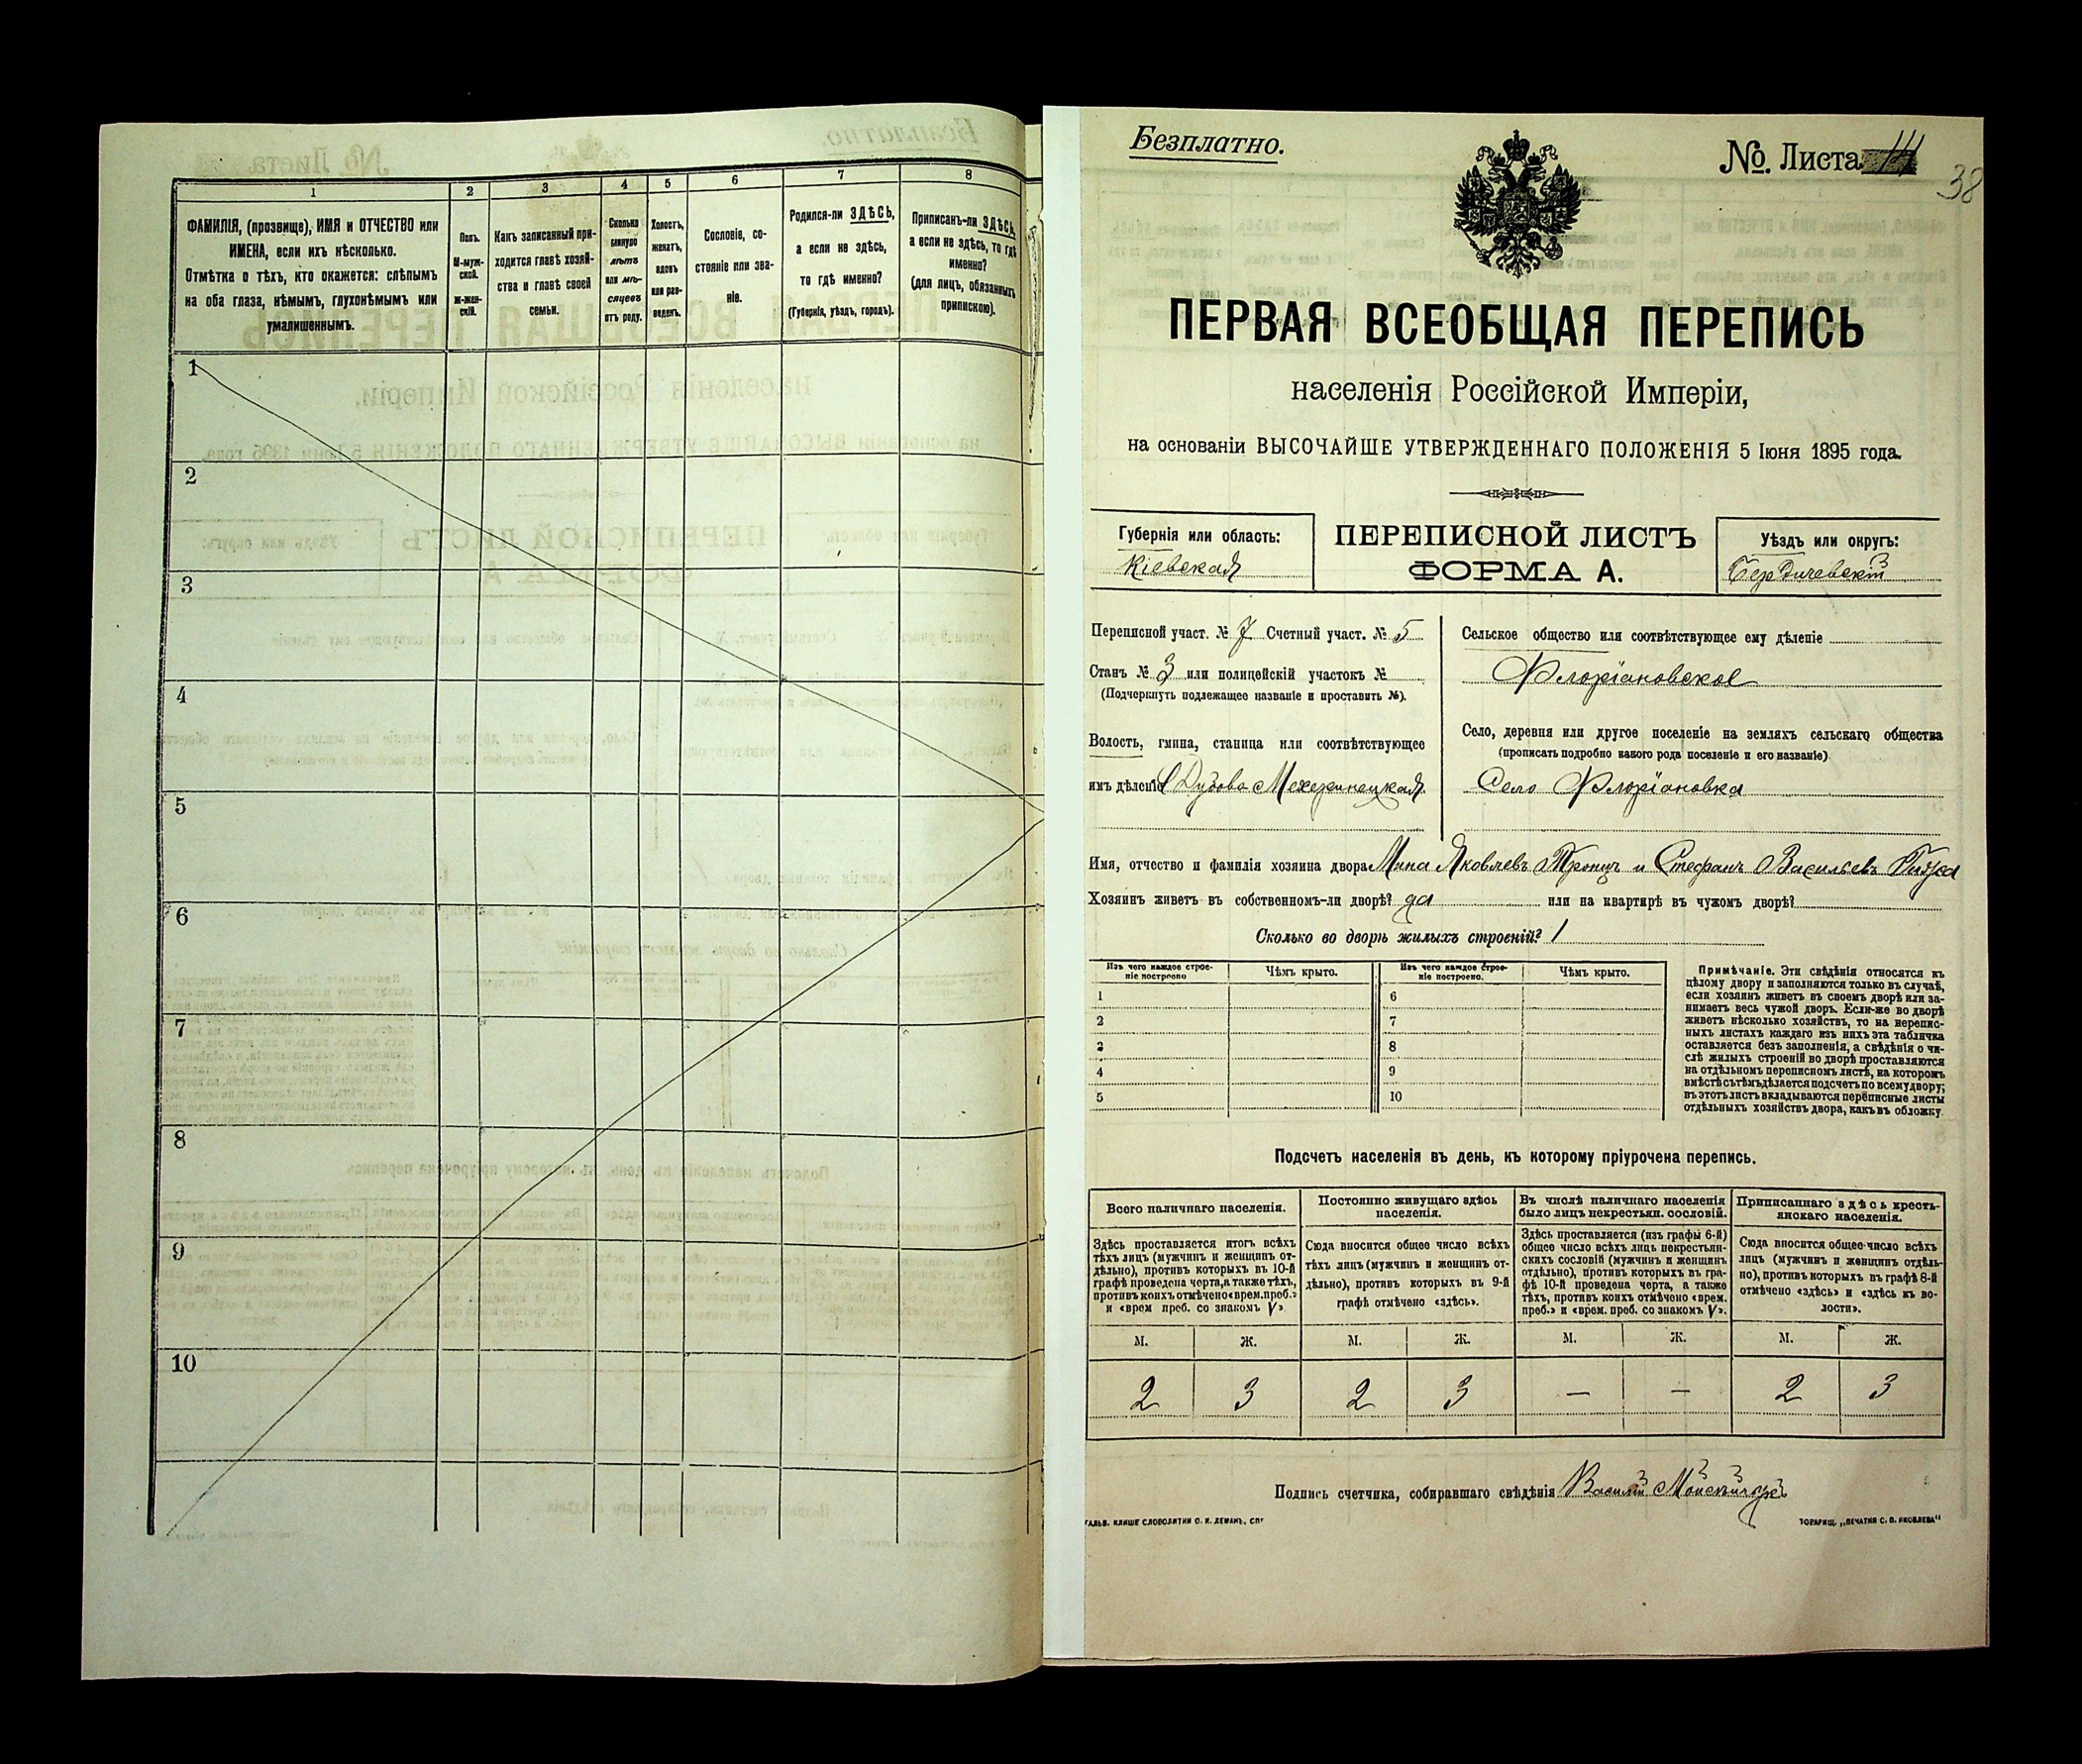 1
2
3
4
5
6
7
8
ФАМИЛІЯ, (прозвище), ИМЯ и ОТЧЕСТВО или
ИМЕНА, если ихъ нѣсколько.
Отмѣтка о тѣхъ, кто окажется: слѣпымъ
на оба глаза, нѣмымъ, глухонѣмымъ или
умалишеннымъ.
Полъ.
М-муж-
ской.
ж-жен-
скій.
Какъ записанный при-
ходится главѣ хозяй-
ства и главѣ своей
семьи.
Сколько
минуло
лѣтъ
или мѣ-
сяцевъ
отъ роду.
Холостъ,
женатъ,
вдовъ
или раз-
веденъ.
Сословіе, со-
стояніе или зва-
ніе.
Родился-ли ЗДѢСЬ,
а если не здѣсь,
то гдѣ именно?
(Губернія, уѣздъ, городъ).
Приписанъ-ли ЗДѢСЬ,
а если не здѣсь, то гдѣ
именно?
(для лицъ, обязанныхъ
припискою).
1
2
3
4
5
6
7
8
9
10
Безплатно.
№. Листа
38
ПЕРВАЯ ВСЕОБЩАЯ ПЕРЕПИСЬ
населенія Россійской Имперіи,
на основаніи ВЫСОЧАЙШЕ УТВЕРЖДЕННАГО ПОЛОЖЕНІЯ 5 Іюня 1895 года.
Губернія или область:
Кіевская
ПЕРЕПИСНОЙ ЛИСТЪ
ФОРМА А.
Уѣздъ или округъ:
Бердичевскій
Переписной участ. № 7 Счетный участ. № 5
Станъ № 3 или полицейскій участокъ №
(Подчеркнуть подлежащее названіе и проставить №).
Волость, гмина, станица или соотвѣтствующее
имъ дѣленіе
Сельское общество или соотвѣтствующее ему дѣленіе
Флоріановское
Село, деревня или другое поселеніе на земляхъ сельскаго общества
(прописать подробно какого рода поселеніе и его названіе)
Село Флоріановка
Имя, отчество и фамилія хозяина двора Мина Яковлевъ и Стефанъ Васильевъ
Хозяинъ живетъ въ собственномъ-ли дворѣ? да или на квартирѣ въ чужомъ дворѣ?
Сколько во дворѣ жилыхъ строеній? 1
Изъ чего каждое строе-
ніе построено
Чѣмъ крыто.
Изъ чего каждое строе-
ніе построено.
Чѣмъ крыто.
1
2
3
4
5
6
7
8
9
10
Примѣчаніе. Эти свѣдѣнія относятся къ
цѣлому двору и заполняются только въ случаѣ,
если хозяинъ живетъ въ своемъ дворѣ или за-
нимаетъ весь чужой дворъ. Если-же во дворѣ
живетъ нѣсколько хозяйствъ, то на перепис-
ныхъ листахъ каждаго изъ нихъ эта табличка
оставляется безъ заполненія, а свѣдѣнія о чи-
слѣ жилыхъ строеній во дворѣ проставляются
на отдѣльномъ переписномъ листѣ, на которомъ
вмѣстѣ съ тѣмъ дѣлается подсчетъ по всему двору;
въ этотъ листъ вкладываются переписные листы
отдѣльныхъ хозяйствъ двора, какъ въ обложку.
Подсчетъ населенія въ день, къ которому пріурочена перепись.
Всего наличнаго населенія.
Постоянно живущаго здѣсь
населенія.
Въ числѣ наличнаго населенія
было лицъ некрестьян. сословій.
Приписаннаго здѣсь кресть-
янскаго населенія.
Здѣсь проставляется итогъ всѣхъ
тѣхъ лицъ (мужчинъ и женщинъ от-
дѣльно), противъ которыхъ въ 10-й
графѣ проведена черта, а также тѣхъ,
противъ коихъ отмѣчено «врем. преб.»
и «врем преб. со знакомъ V».
Сюда вносится общее число всѣхъ
тѣхъ лицъ (мужчинъ и женщинъ от-
дѣльно), противъ которыхъ въ 9-й
графѣ отмѣчено «здѣсь».
Здѣсь проставляется (изъ графы 6-й)
общее число всѣхъ лицъ некрестьян-
скихъ сословій (мужчинъ и женщинъ
отдѣльно), противъ которыхъ въ гра-
фѣ 10-й проведена черта, а также
тѣхъ, противъ коихъ отмѣчено «врем.
преб.» и «врем. преб. со знакомъ V».
Сюда вносится общее число всѣхъ
лицъ (мужчинъ и женщинъ отдѣль-
но), противъ которыхъ въ графѣ 8-й
отмѣчено «здѣсь» и «здѣсь къ во-
лости».
М. Ж. М. Ж. М. Ж. М. Ж.
2 3 2 3 — — 2 3
Подпись счетчика, собиравшаго свѣдѣнія Василій
ГАЛЬВ. КЛИШЕ СЛОВОЛИТНИ О. И. ЛЕМАНЪ, СП
ТОВАРИЩ. „ПЕЧАТНЯ С. П. ЯКОВЛЕВА“